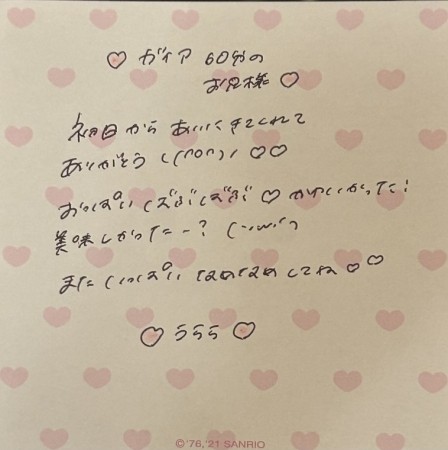 ♡ ガイア 60分の
お兄様 ♡
初日から あいにきてくれて
ありがとう ♡♡
おっぱい ♡ かわいかった!
美味しかったー? (´・ω・`)
また いっぱい ぺろぺろ してね ♡♡
♡ うらら ♡
©'76,'21 SANRIO